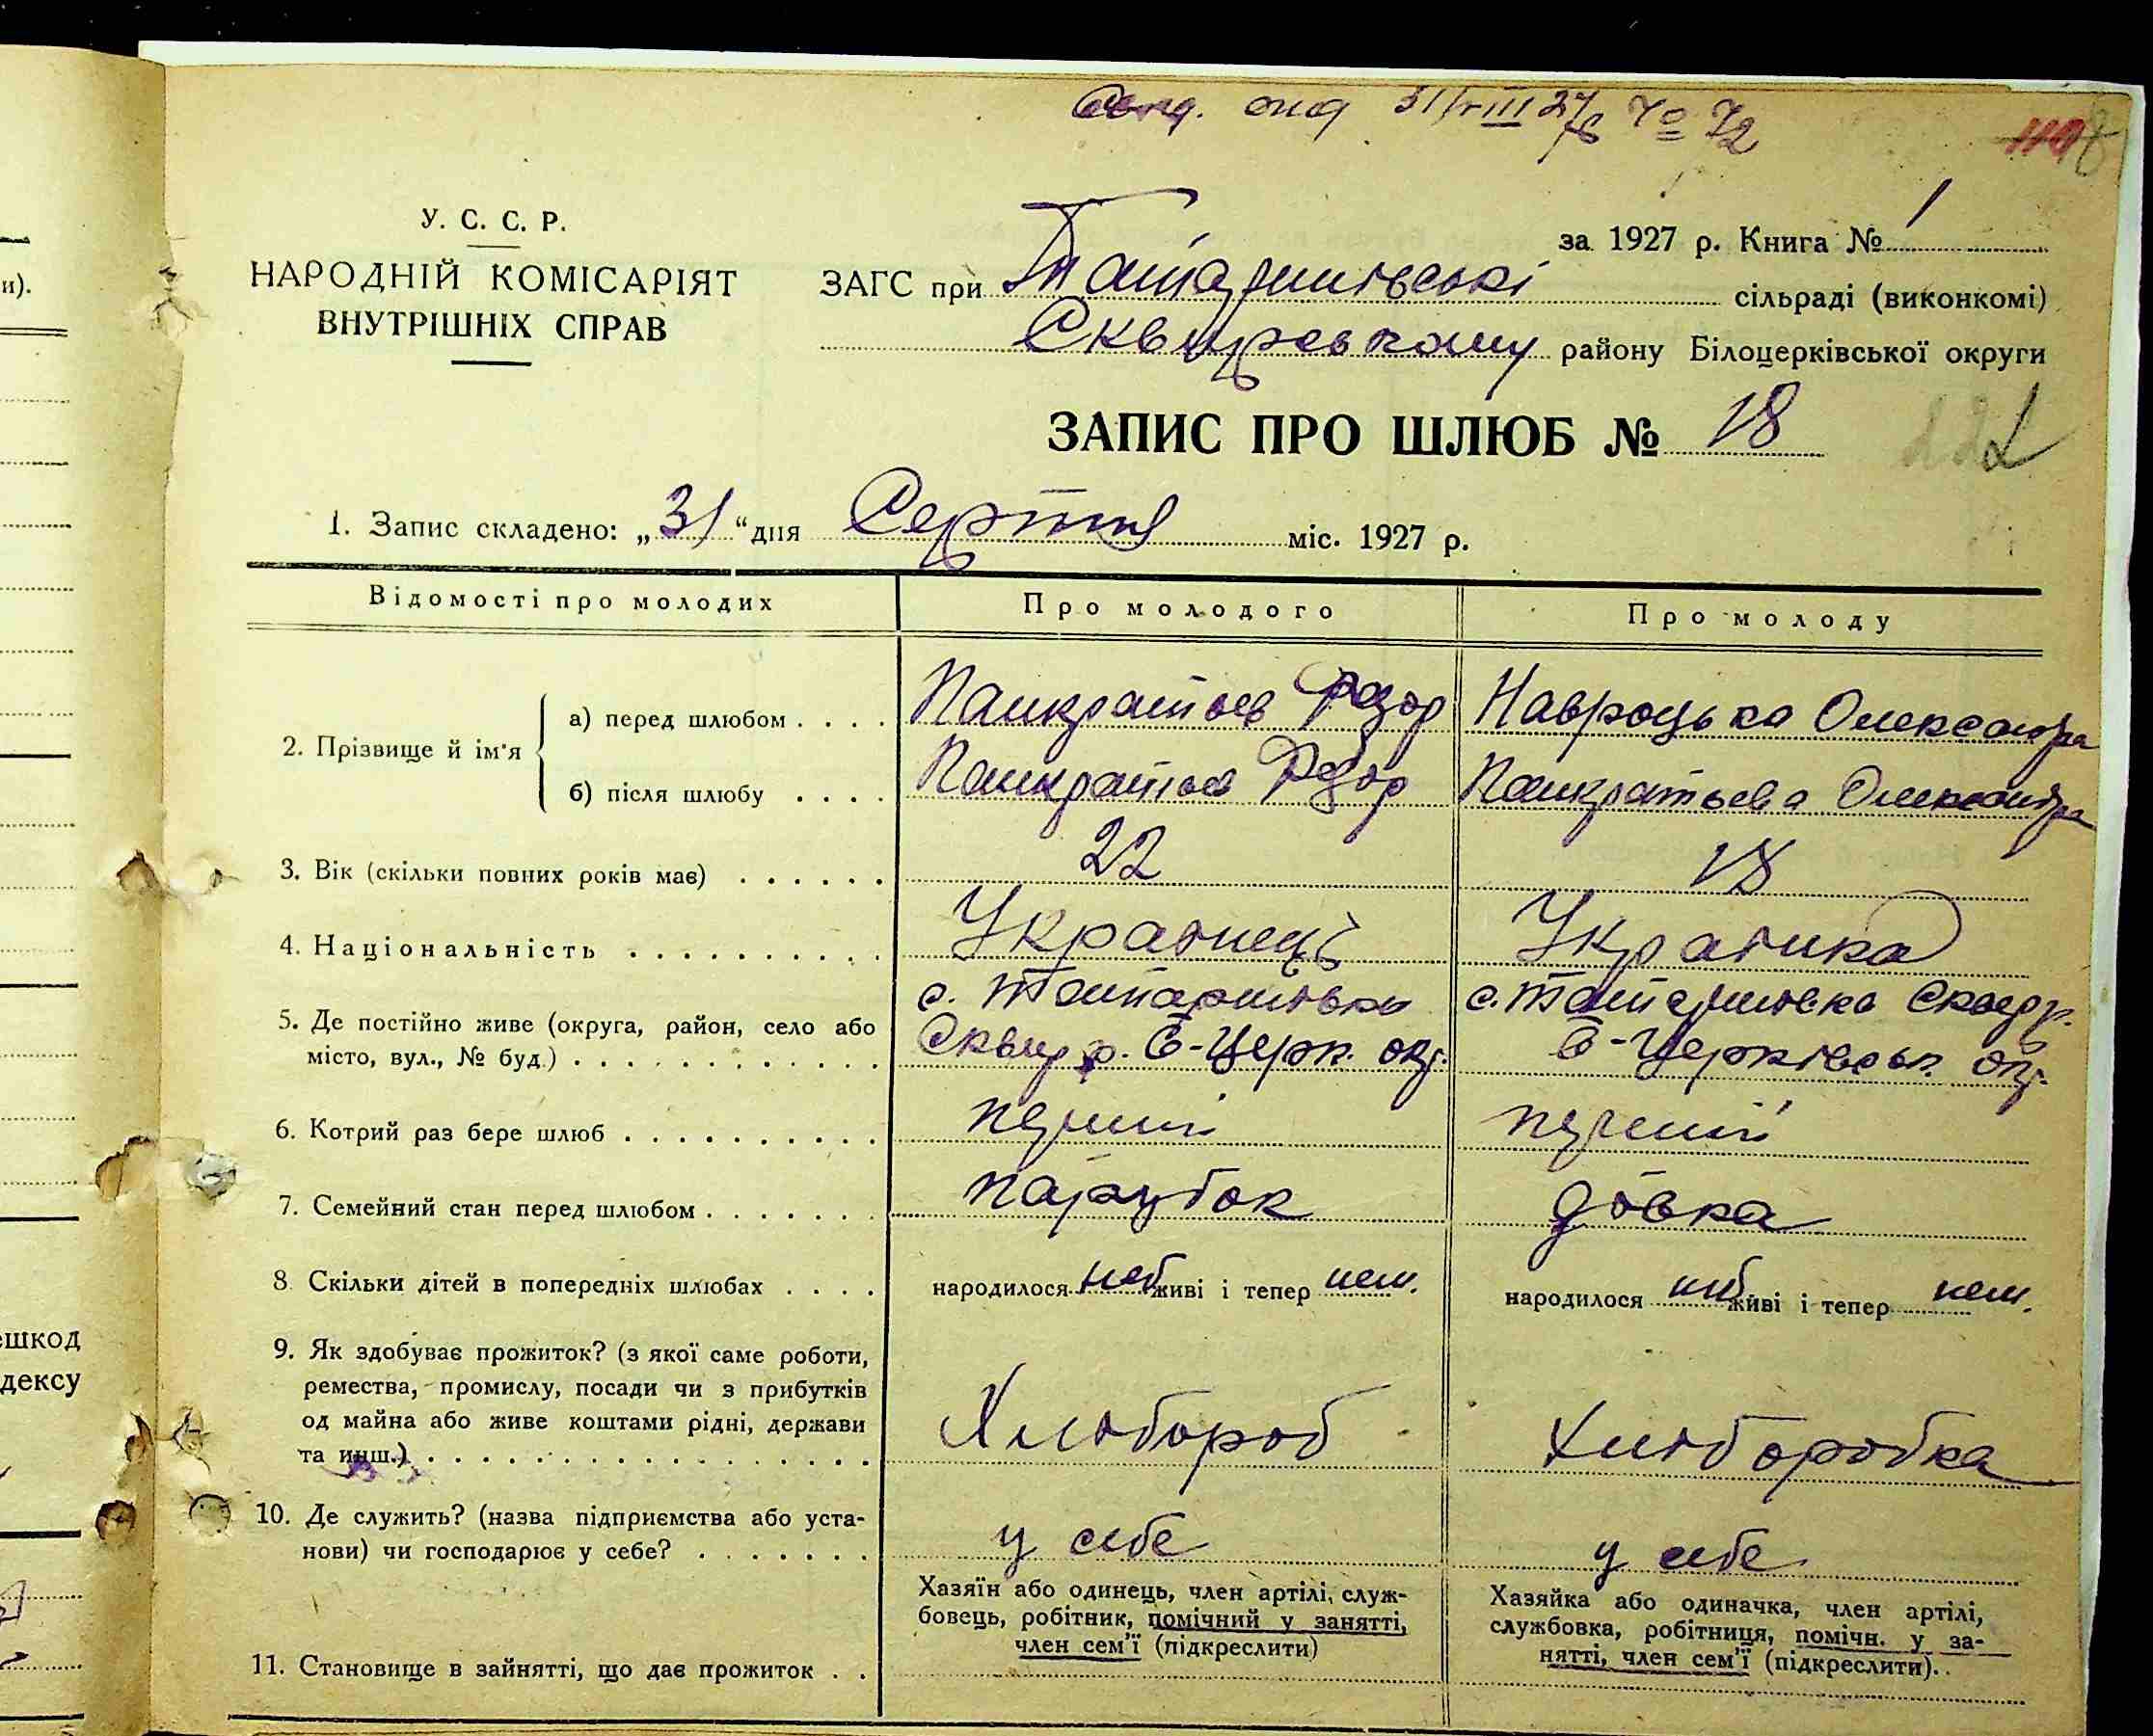 31/VIII 27 р № 72
У. С. С. Р.
НАРОДНІЙ КОМІСАРІЯТ
ВНУТРІШНІХ СПРАВ
за 1927 р. Книга № 1
ЗАГС при Татаринівські сільраді (виконкомі)
Сквирському району Білоцерківської округи
ЗАПИС ПРО ШЛЮБ № 18
1. Запис складено: „31“ дня Серпня міс. 1927 р.
Відомості про молодих Про молодого Про молоду
2. Прізвище й ім'я
а) перед шлюбом . . . . Панкратьєв Федор Навроцька Олександра
б) після шлюбу . . . . Панкратьєв Федор Панкратьєва Олександра
3. Вік (скільки повних років має) . . . . . . 22 18
4. Національність . . . . . . . . . . Українець Українка
5. Де постійно живе (округа, район, село або с. Татаринівка с. Татаринівка Сквир р.
місто, вул., № буд.) . . . . . . . . . . . . . Сквир р. Б-Церк. окр. Б-Церківськ. окр.
6. Котрий раз бере шлюб . . . . . . . . . . перший перший
7. Семейний стан перед шлюбом . . . . . . . парубок дівка
8. Скільки дітей в попередніх шлюбах . . . . народилося живі і тепер нем. народилося живі і тепер нем.
9. Як здобуває прожиток? (з якої саме роботи,
ремества, промислу, посади чи з прибутків
од майна або живе коштами рідні, держави
та инш.) . . . . . . . . . . . . . . . . . Хлібороб Хліборобка
10. Де служить? (назва підприємства або уста-
нови) чи господарює у себе? . . . . . . . у себе у себе
Хазяїн або одинець, член артілі, служ-
бовець, робітник, помічний у занятті,
член сем'ї (підкреслити)
Хазяйка або одиначка, член артілі,
службовка, робітниця, помічн. у за-
нятті, член сем'ї (підкреслити).
11. Становище в зайнятті, що дає прожиток . .
и).
ешкод
дексу